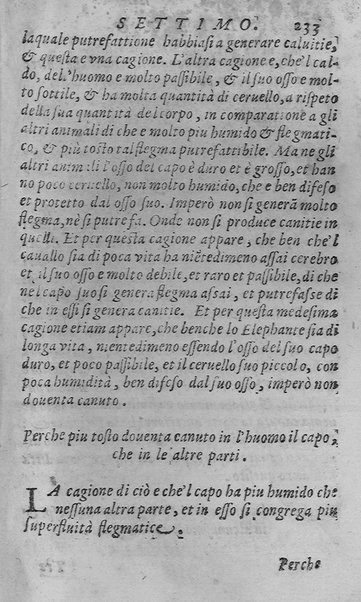 SETTIMO. 233
laquale putrefattione habbiasi a generare caluitie,
& questa e vna cagione. L'altra cagione e, che'l cal-
do, dell'huomo e molto passibile, & il suo osso e mol-
to sottile, & ha molta quantità di ceruello, a rispeto
della sua quantità del corpo, in comparatione a gli
altri animali di che e molto piu humido & flegmati-
co, & più tosto tal flegma putrefattibile. Ma ne gli
altri animali l'osso del capo è duro et è grosso, et han
no poco ceruello, non molto humido, che e ben difeso
et protetto dal osso suo. Imperò non si generà molto
flegma, nè si putrefa. Onde non si produce canitie in
quelli. Et per questa cagione appare, che ben che'l
cauallo sia di poca vita ha niētedimeno assai cerebro
et il suo osso e molto debile, et raro et passibile, di che
nel capo suo si genera flegma assai, et putrefasse di
che in essi si genera canitie. Et per questa medesima
cagione etiam appare, che benche lo Elephante sia di
longa vita, nientedimeno essendo l'osso del suo capo
duro, et poco passibile, et il ceruello suo piccolo, con
poca humidità, ben difeso dal suo osso, imperò non
douenta canuto.
Perche piu tosto douenta canuto in l'huomo il capo,
che in le altre parti.
LA cagione di ciò e che'l capo ha piu humido che
nessuna altra parte, et in esso si congrega piu
superfluità flegmatice.
Perche